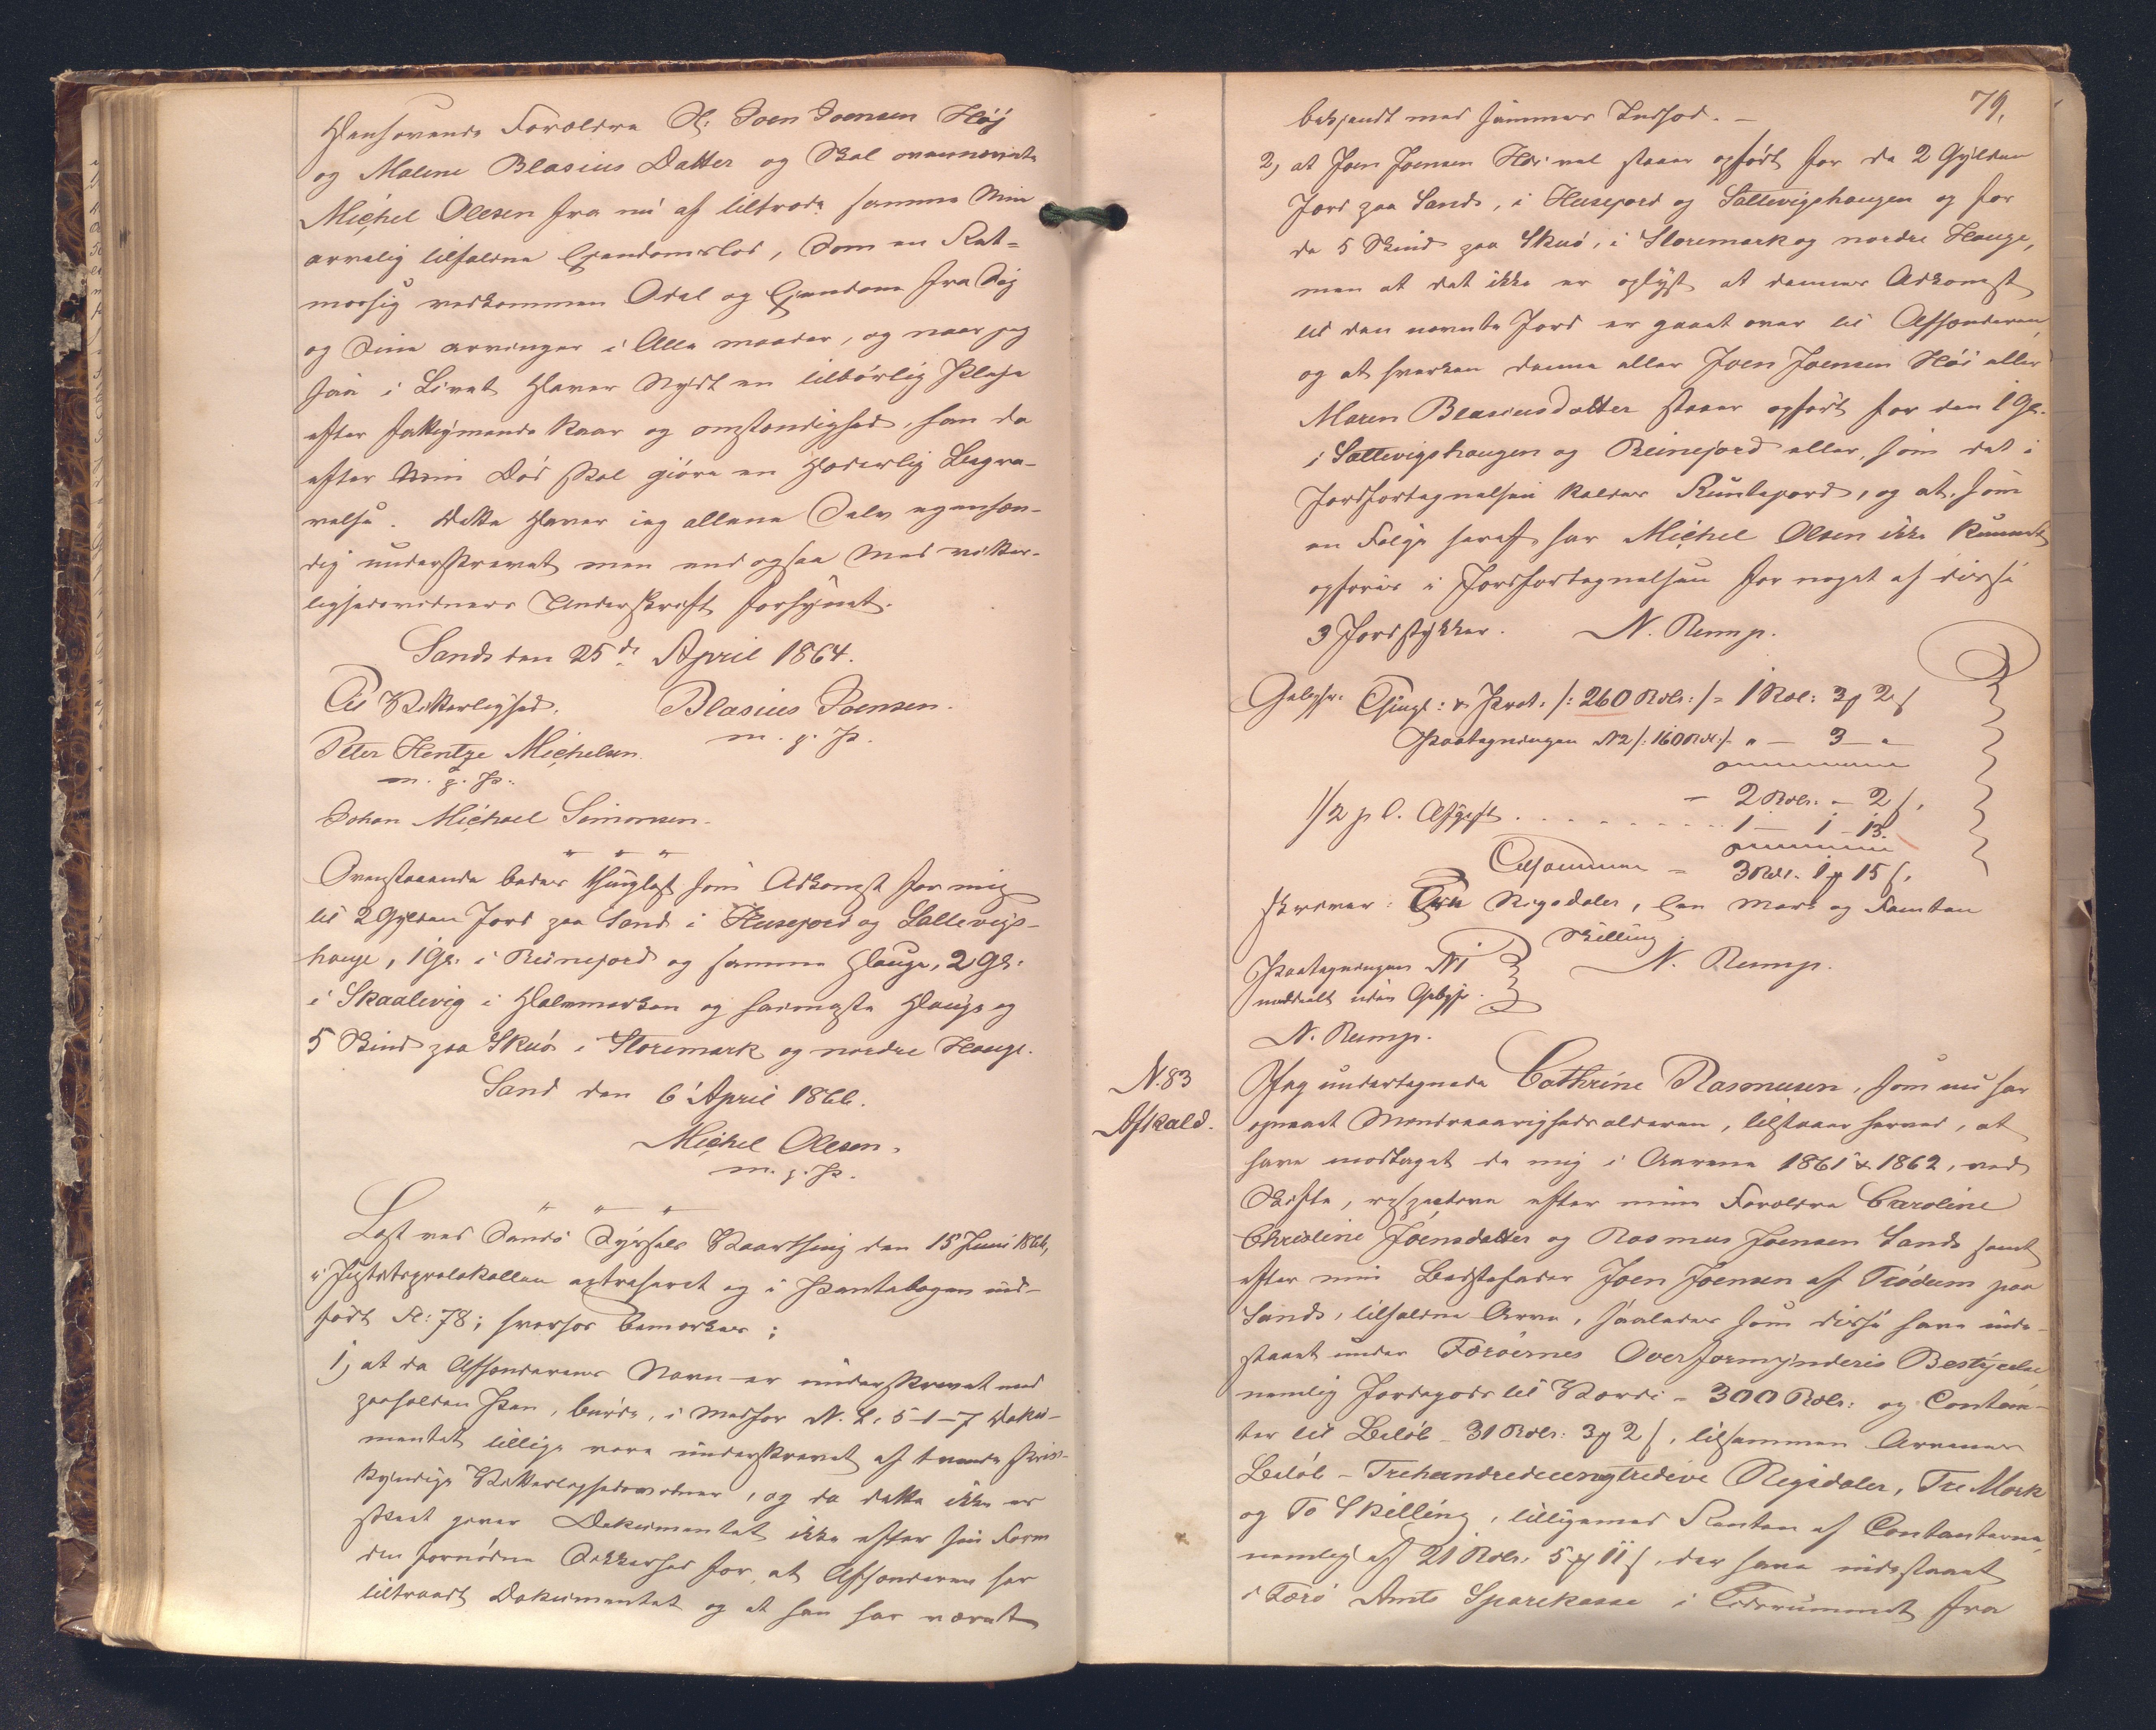 Hensovende Forældre Sl: Joen Joensen Høj
og Malene Blasius Datter og Skal ovennævnte
Michel Olesen fra nu af tiltræde samme Min
arvelig tilfaldne Ejendomslod, Som en Ret-
mæsig vedkommen Odel og Ejendom fra Sig
og Sine arvinger i Alle maader, og naar jeg
saa i Livet Haver Nydt en tilbørlig Pleje
efter fattigmands Kaar og omstændighed, han da
efter Min Død skal giøre en Hæderlig Begra-
velse. Dette Haver ieg allene Selv egenhæn-
dig underskrevet men endogsaa Med vitter-
lighedsvidners Underskrift forsynet.
Sands den 25de April 1864.
Til Vitterlighed. Blasius Joensen.
Peter Hentze Michelsen. m. p. P.
m. p. P.
Johan Michael Simonsen.
Ovenstaaende bedes thinglæst som Adkomst for mig
til 2 Gylden Jord paa Sand i Husejord og Sattevigs-
hauge, 1 Gl. i Reinejord og samme Hauge, 2 Gl.
i Skaalevig i Heimmarken og hiemste Hauge og
5 Skind paa Skuø i Storemark og nordre Hauge.
Sand den 6' April 1866.
Michel Olesen.
m. p. P.
Læst ved Sandø Syssels Vaarthing den 15 Juni 1866,
i Justitsprotokollen extraheret og i Pantebogen ind-
ført Fl: 78; hvorhos bemærkes:
1, at da Afhænderens Navn er underskrevet med
paaholden Pen, burde, i Medfør N. L. 5-1-7 Doku-
mentet tillige være underskrevet af tvende skriv-
kyndige Vitterlighedsvidner, og da dette ikke er
skeet giver Dokumentet ikke efter sin Form
den fornødne Sikkerhed for, at Afhænderen har
tiltraadt Dokumentet og at han har været
79,
bekjendt med sammes Indhod. -
2, at Joen Joensen Høi vel staaer opført for de 2 Gylden
Jord paa Sands, i Husejord og Sattevigshaugen og for
de 5 Skind paa Skuø, i Storemark og nordre Hauge,
men at det ikke er oplyst at dennes Adkomst
til den nævnte Jord er gaaet over til Afhænderen,
og at hverken denne eller Joen Joensen Høi eller
Maren Blasiusdatter staaer opført for den 1 Gl.
i Sattevigshaugen og Reinejord eller, som det i
Jordfortegnelsen kaldes Runtejord, og at, som
en Følge heraf har Michel Olsen ikke kunnet
opføres i Jordfortegnelsen for noget af disse
3 Jordstykker. N. Rump.
Gebyhr: Thingl: & Prot. /: 260 Rdlr: /= 1 Rdl: 3 ₰ 2 ſ
Paategningen N2 /: 160 Rdl:/ " - 3 - "
- 2 Rdlr. - 2 ſ.
1/2 p C. Afgift . . . . . . . 1 - 1 - 13.
Tilsammen = 3 Rdl. 1 ₰ 15 ſ.
skriver: Tre Rigsdaler, Een Mark og Femten
Skilling.
Paategningen N1 N. Rump.
meddelt uden Gebyhr.
N. Rump.
N. 83
Afkald.
Jeg undertegnede Cathrine Rasmusen, som nu har
opnaaet Myndraaarighedsalderen, tilstaaer herved, at
have modtaget de mig i Aarene 1861 & 1862, ved
Skifte, respective efter mine Forældre Caroline
Christine Joensdatter og Rasmus Joensen Sands samt
efter min Bedstefader Joen Joensen af Trødum paa
Sands, tilfaldne Arve, saaledes som disse have inde-
staaet under Færøernes Overformynderis Bestyrelse
nemlig Jordegods til Værdi - 300 Rdlr: og Contan-
ter til Beløb - 31 Rdlr: 3 ₰ 2 ſ, tilsammen Arvenes
Beløb - Trehundredeeenogtredive Rigsdaler, Tre Mark
og To Skilling, tilligemed Renten af Contanterne,
nemlig af 21 Rdlr. 5 ₰ 11 ſ. der have indestaaet
i Færø Amts Sparekasse i Tidsrummet fra